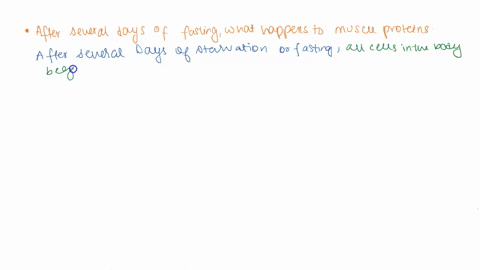 • After several days of fasting, what happens to muscle proteins
After several Days of starvation or fasting, all cells in the body
beg